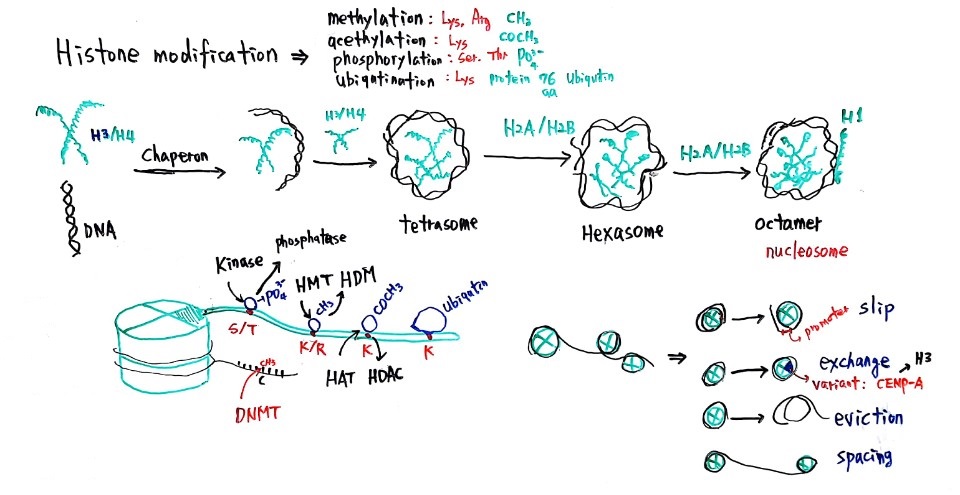 Histone modification ⇒
methylation : Lys, Arg CH₃
acethylation : Lys COCH₃
phosphorylation : Ser. Thr PO₄³⁻
Ubiqutination : Lys protein 76 aa Ubiqutin
H3/H4
DNA
Chaperon
H3/H4
tetrasome
H2A/H2B
Hexasome
H2A/H2B
H1
Octamer
nucleosome
Kinase
phosphatase
PO₄³⁻
S/T
HMT HDM
CH₃
K/R
COCH₃
K
HAT HDAC
Ubiqutin
K
CH₃
C
DNMT
⇒
promoter
slip
exchange
H3
variant: CENP-A
eviction
spacing